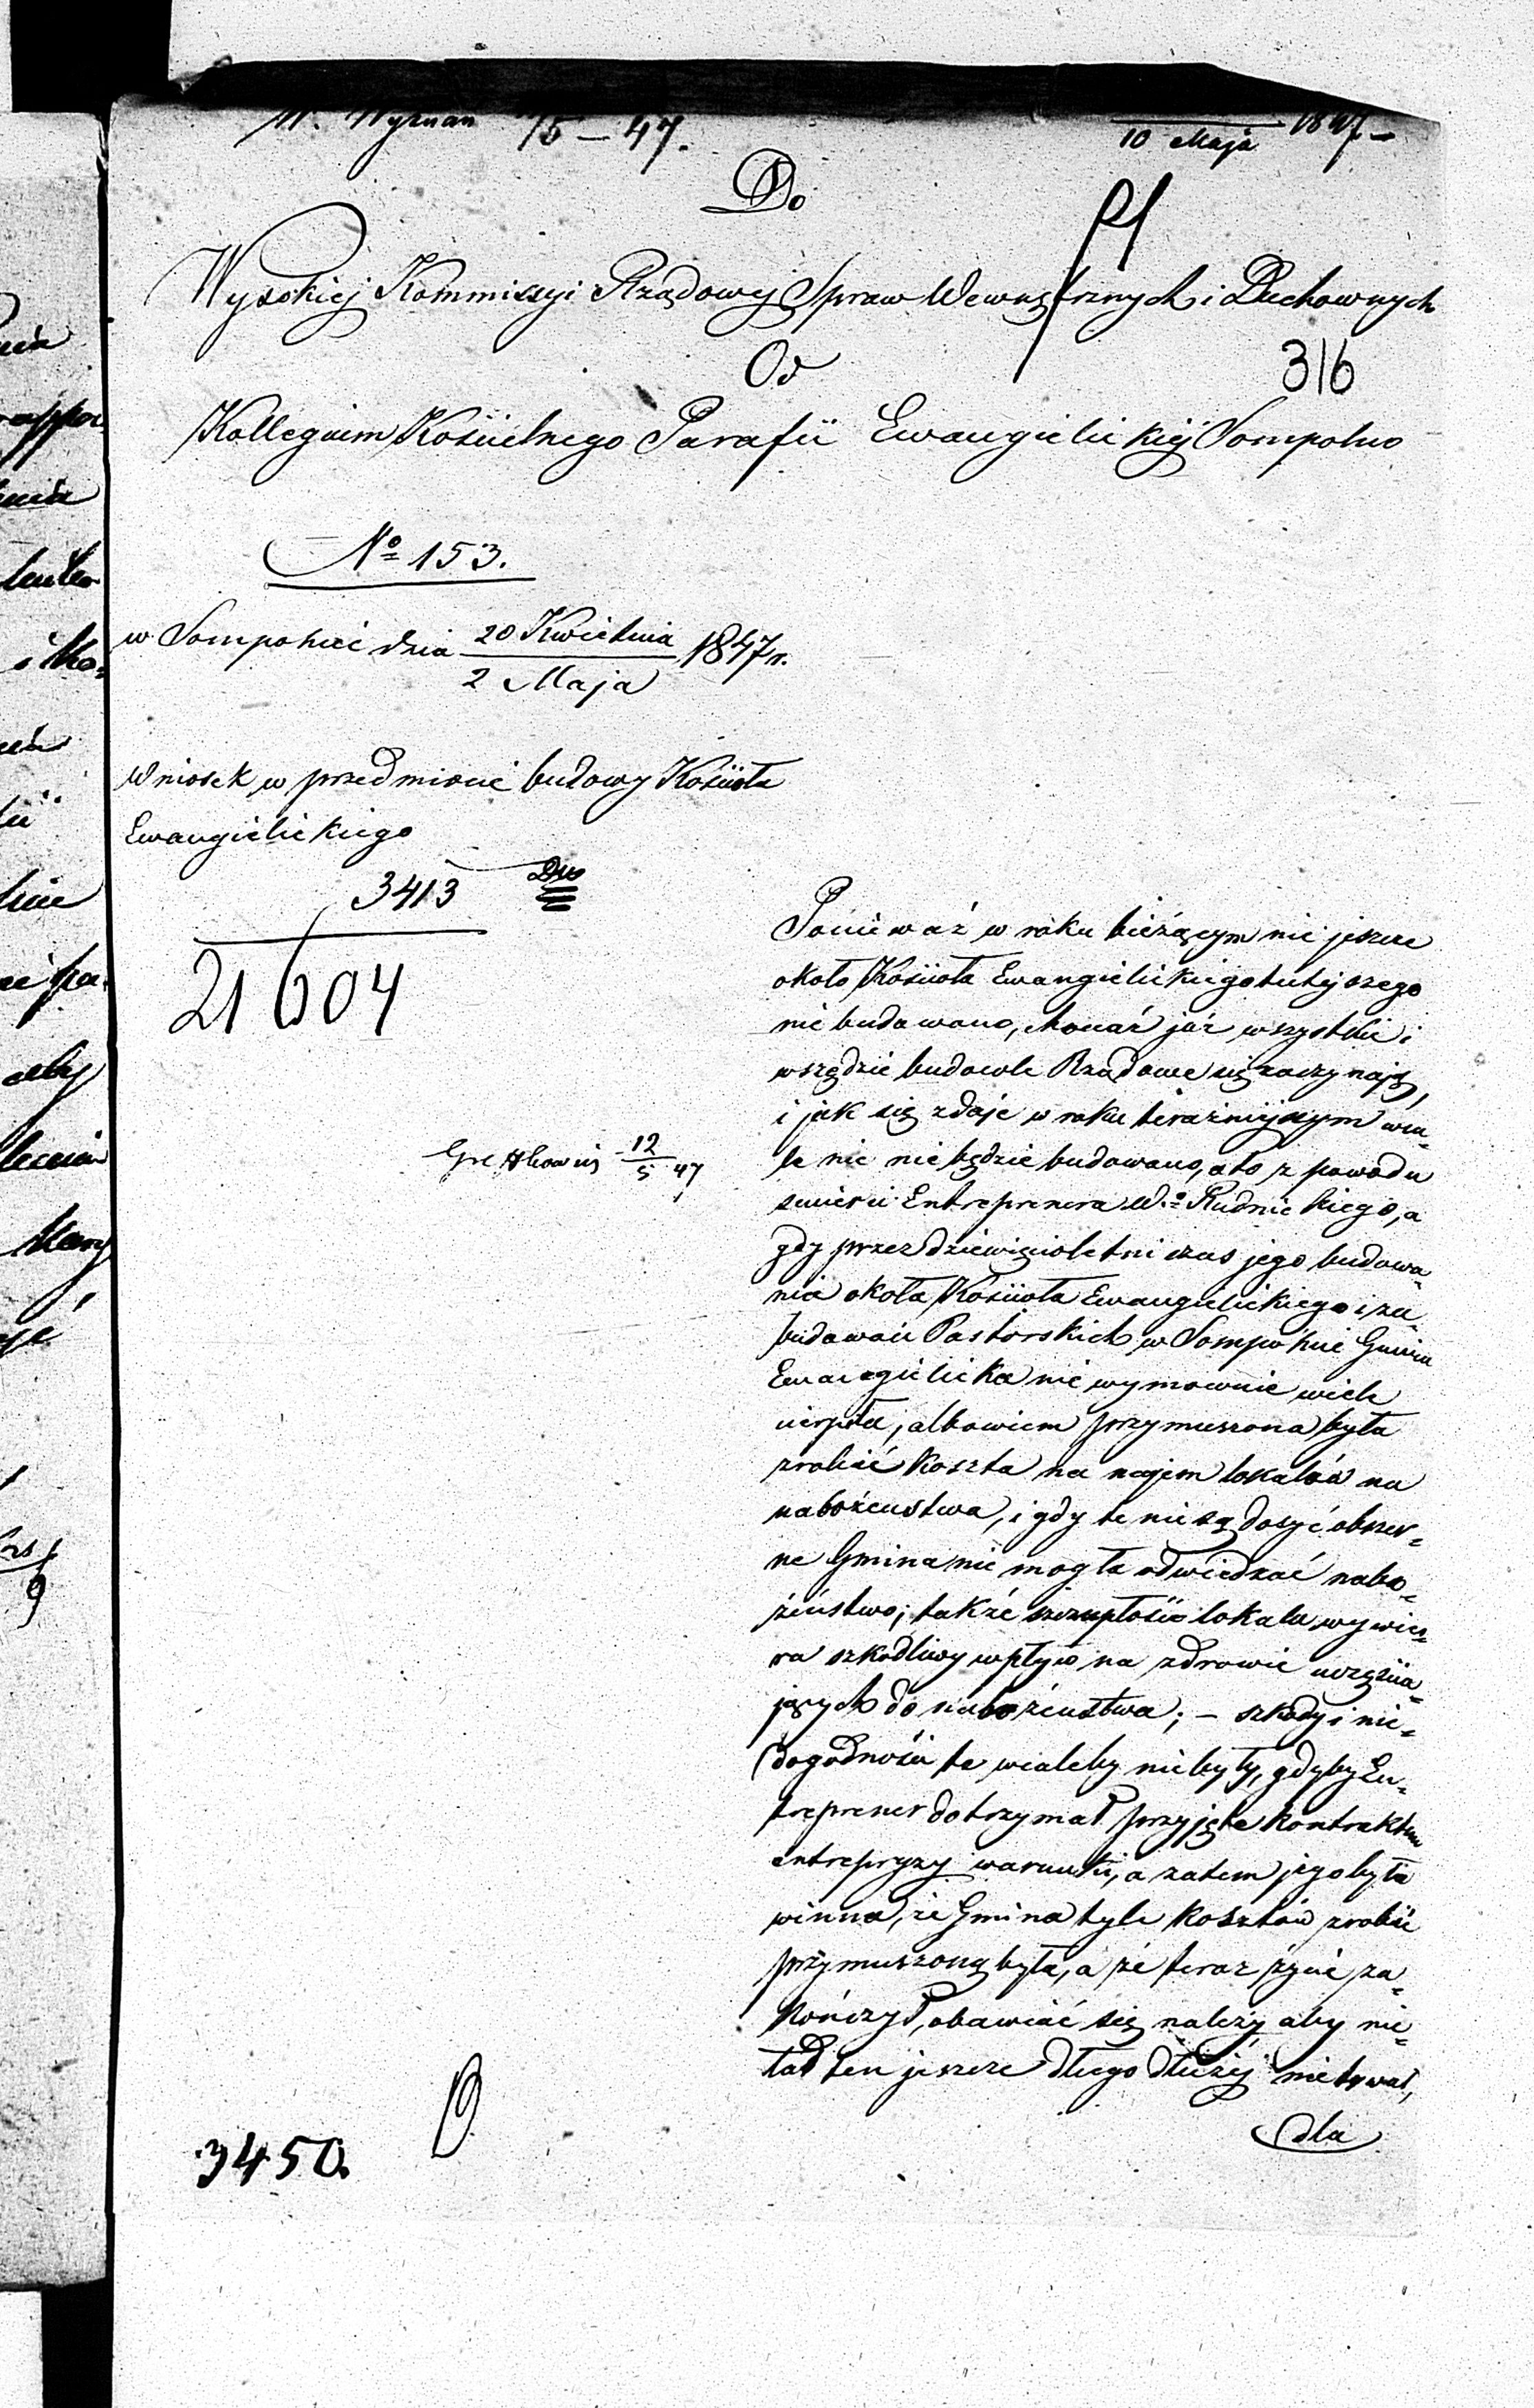 W. Wyznań 75 – 47.
10 Maja 1847 –
Do
Wysokiej Kommissyi Rządowej Spraw Wewnętrznych i Duchownych
Od
316
Kollegium Kościelnego Parafii Ewangielickiej Sompolno
№ 153.
w Sompolnie dnia 20 Kwietnia / 2 Maja 1847 r.
Wniosek w przedmiocie budowy Kościoła
Ewangielickiego
3413
21604
12/5 47
Ponieważ w roku bieżącym nic jeszcze
około Kościoła Ewangielickiego tutejszego
nie budowano, chociaż już wszystkie i
wszędzie budowle Rządowe się zaczynają,
i jak się zdaje w roku teraźniejszym wca„
le nic nie będzie budowano, a to z powodu
śmierci Entreprenera W.º Rudnickiego, a
gdy przez dziewięcioletni czas jego budowa„
nia około Kościoła Ewangielickiego i za„
budowań Pastorskich w Sompolnie Gmina
Ewangielicka nie wymownie wiele
cierpiała, albowiem przymuszona była
zrobić koszta na najem lokalów na
nabożeństwa, i gdy te nie są dosyć obszer„
ne Gmina nie mogła odwiedzać nabo„
żeństwo; także szczupłość lokalu wywie„
ra szkodliwy wpływ na zdrowie uczęsczа„
jących do nabożeństwa; – szkody i nie„
dogodności te wcaleby nie były, gdyby En„
treprener dotrzymał przyjęte kontraktem
entrepryzy warunki, a zatem jego była
winna, że Gmina tyle kosztów zrobić
przymuszoną była, a że teraz życie za„
kończył, obawiać się należy aby nie„
ład ten jeszcze długo dłużej nie trwał,
dla
3450.